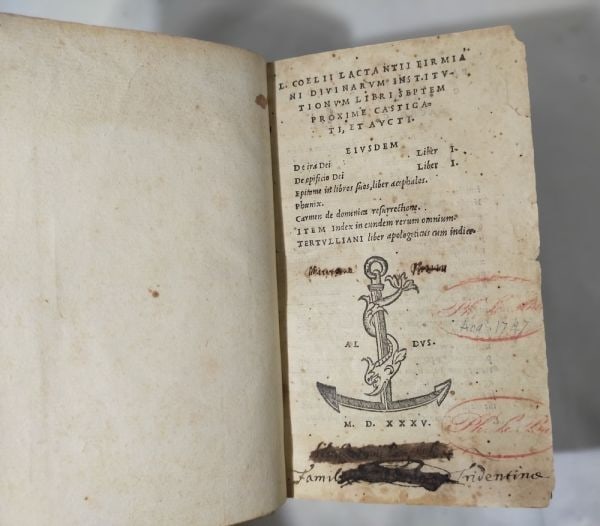 L. COELII LACTANTII FIRMIA
NI DIVINARVM INSTITV-
TIONVM LIBRI SEPTEM
PROXIME CASTIGA-
TI, ET AVCTI.
EIVSDEM
De ira Dei Liber I.
De opificio Dei Liber I.
Epitome in libros suos, liber acephalos.
Phœnix.
Carmen de dominica resurrectione.
ITEM Index in eundem rerum omnium.
TERTVLLIANI liber apologeticus cum indice.
AL DVS.
M. D. XXXV.
Tridentinæ